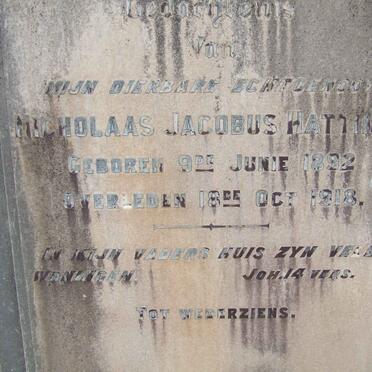 Gedachtenis
Van
MIJN DIERBARE ECHTGENOOT
NICHOLAAS JACOBUS HATTIN
GEBOREN 9DE JUNIE 1892
OVERLEDEN 18DE OCT 1918.
IN MIJN VADERS HUIS ZYN VELE
WONINGEN. JOH. 14 VERS.
TOT WEDERZIENS.